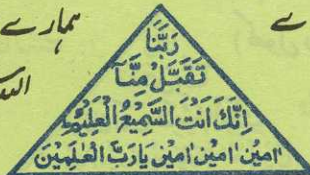 ہمارے
رَبَّنَا
تَقَبَّلْ مِنَّا
اِنَّكَ اَنْتَ السَّمِيْعُ الْعَلِيْمُ
اٰمِيْن اٰمِيْن اٰمِيْن يَارَبَّ الْعٰلَمِيْنَ